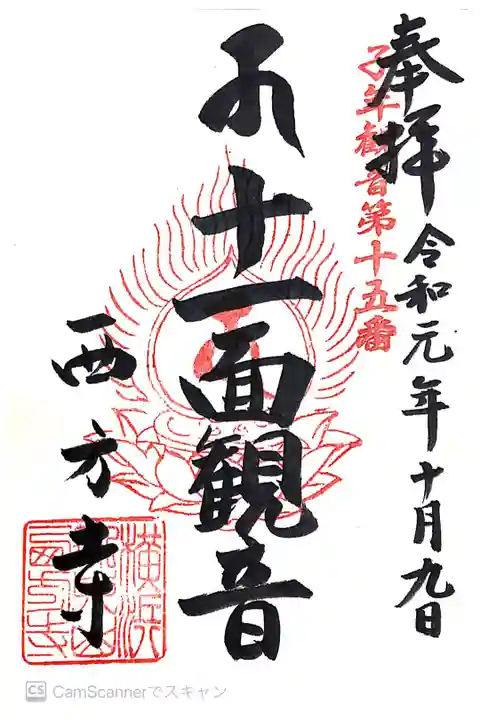 奉拝
子年観音第十五番
令和元年十月九日
十一面観音
西方寺
横浜
CS CamScannerでスキャン